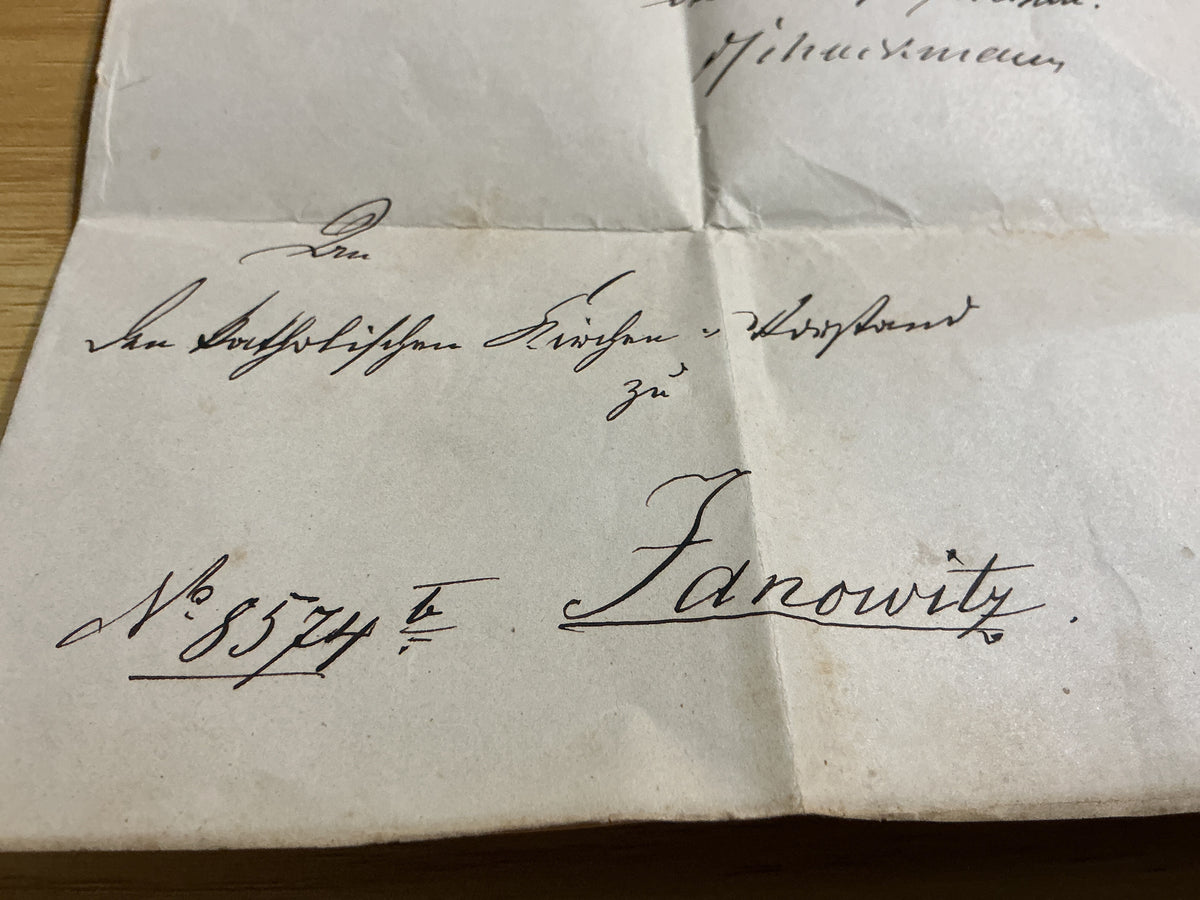 Schuckmann
An
den katholischen Kirchen-Vorstand
zu
Janowitz.
No. 8574 b